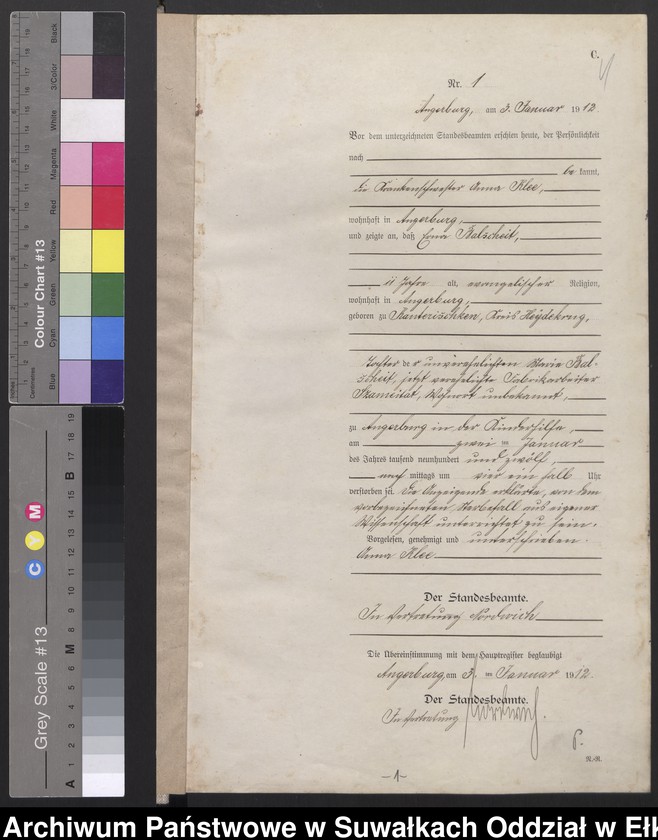 C.
Nr. 1
Angerburg, am 3. Januar 1912.
Vor dem unterzeichneten Standesbeamten erschien heute, der Persönlichkeit
nach
be kannt,
die Krankenschwester Anna Klee,
wohnhaft in Angerburg,
und zeigte an, daß Erna Balscheit,
11 Jahre alt, evangelischer Religion,
wohnhaft in Angerburg,
geboren zu Kanterischken, Kreis Heydekrug,
Tochter der unverehelichten Marie Bal-
scheit, jetzt verehelichte Fabrikarbeiter
Skameitat, Wohnort unbekannt,
zu Angerburg in der Kinderhilfe,
am zwei ten Januar
des Jahres tausend neunhundert und zwölf,
nach mittags um vier ein halb Uhr
verstorben sei. Die Anzeigende erklärte, von dem
vorbezeichneten Sterbefall aus eigener
Wissenschaft unterrichtet zu sein.
Vorgelesen, genehmigt und unterschrieben.
Anna Klee
Der Standesbeamte.
In Vertretung Nordwich
Die Übereinstimmung mit dem Hauptregister beglaubigt
Angerburg, am 3. ten Januar 1912.
Der Standesbeamte.
In Vertretung
R.-R.
-1-
Colour Chart #13
Blue Cyan Green Yellow Red Magenta White 3/Color Black
Centimetres
Inches
Grey Scale #13
C Y M
A 1 2 3 4 5 6 M 8 9 10 11 12 13 14 15 B 17 18 19
Archiwum Państwowe w Suwałkach Oddział w Ełk